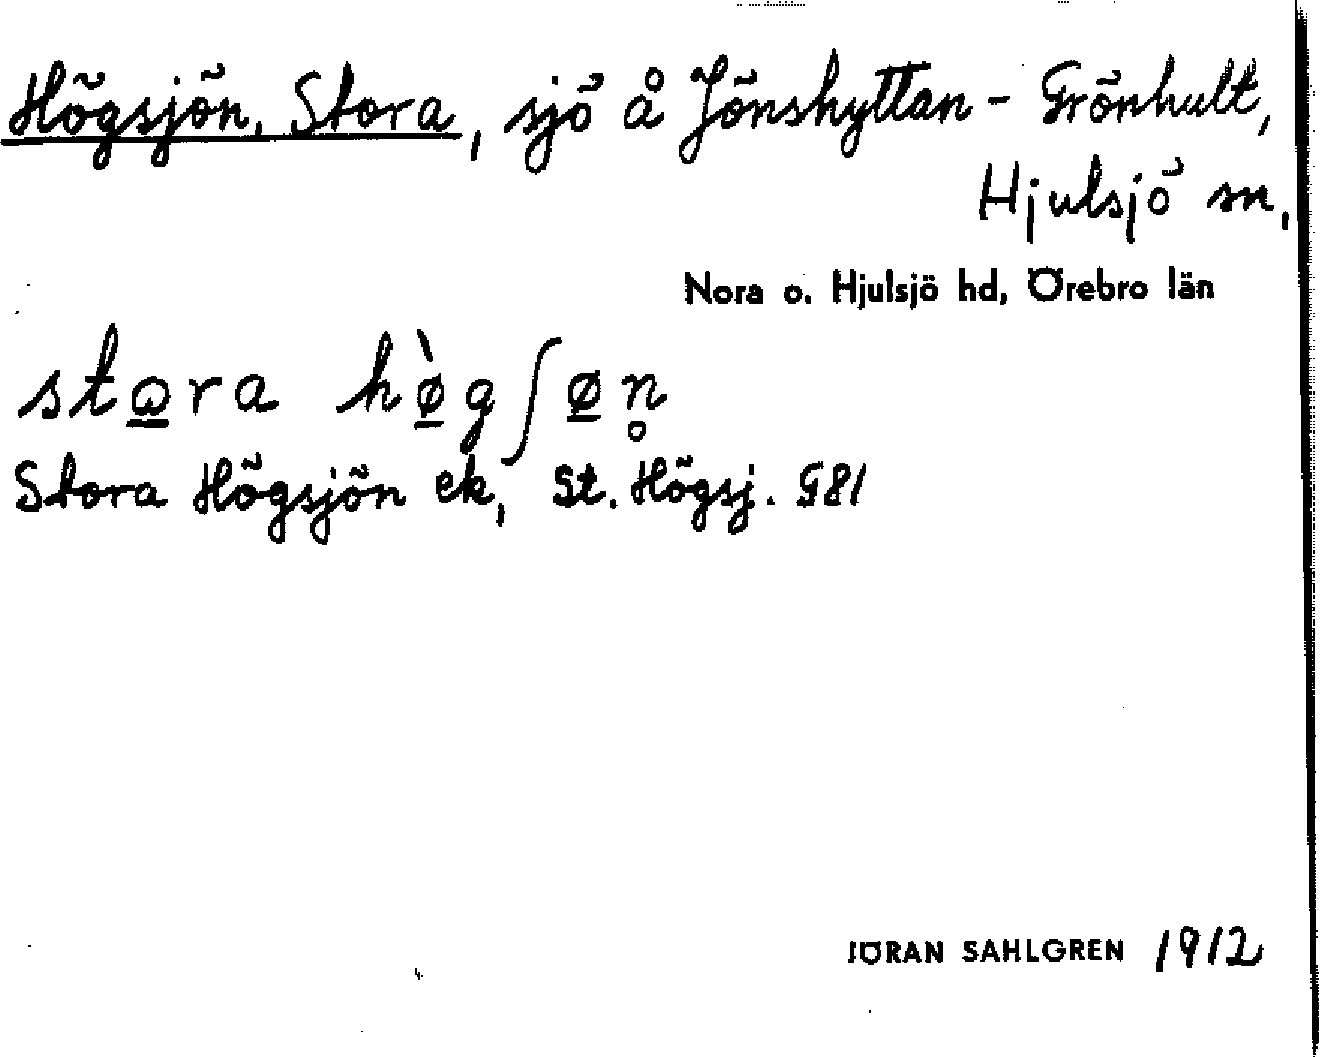 Högsjön, Stora, sjö å Jönshyttan - Grönhult,
Hjulsjö sn,
Nora o. Hjulsjö hd, Örebro län
stꞷ̲ra hø̲̀gʃø̲n̥
Stora Högsjön ek, St. Högsj. G81
JÖRAN SAHLGREN 1912